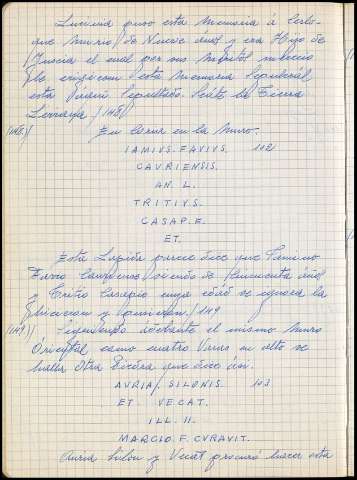 Lucina puso esta Memoria á Cerlo-
que murio de Nueve años y era Hijo de
Tuscia el cual por sus meritos merecio
le erigiesen esta Memoria Sepulcral
esta Aqui Sepultado. Seate la Tierra
Liviana /148/
/148/ En Coria en la Muro.
IAMIVS. FAVIVS. 142
CAVRIENSIS.
AN. L.
TRITIVS.
CASAP. F.
ET.
Esta Lapida parece dice que
Favio Cauriense siendo de Cincuenta años
y Tritio Casapio cuya edad se ignora la
/149
/149/ Siguiendo adelante el mismo Muro
Oriental como cuatro Varas en alto se
halla Otra Piedra que dice asi.
AVRIA/ SILONIS 143
ET VECAT.
ILL. II.
MARCIO F. CVRAVIT.
Auria Silon y Vecat procuró hacer esta